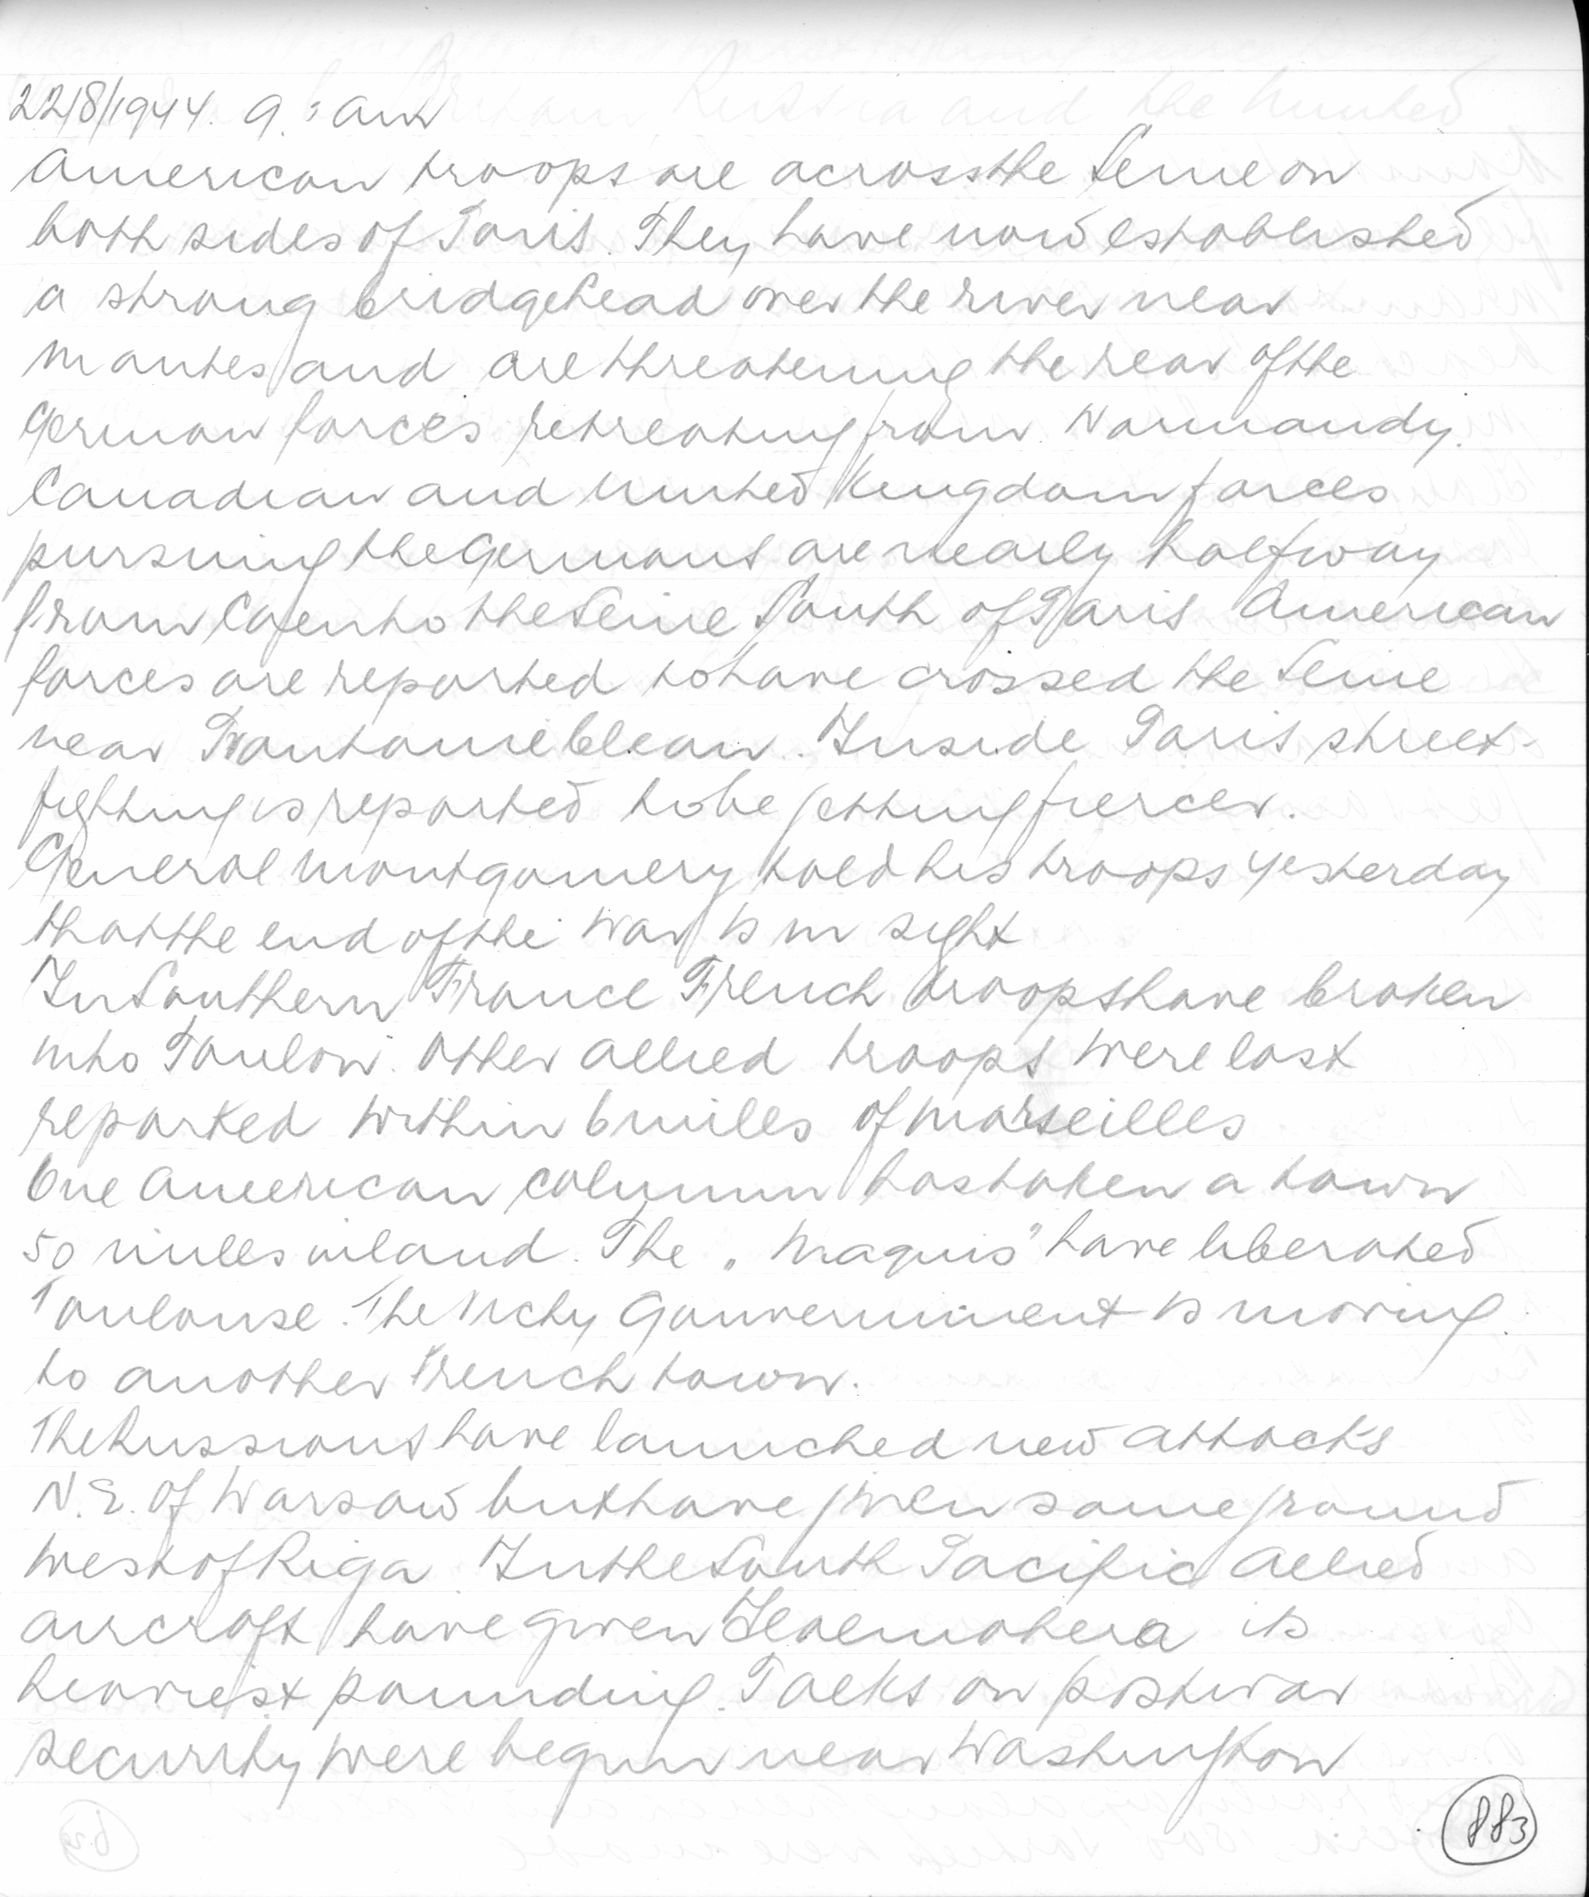 22/8/1944. 9.: am
American troops are across the Seine on
both sides of Paris. They have now established
a strong bridgehead over the river near
Mantes and are threatening the rear of the
German forces retreating from Normandy.
Canadian and United Kingdom forces
pursuing the Germans are nearly halfway
from Caen to the Seine South of Paris American
forces are reported to have crossed the Seine
near Fontainebleau. Inside Paris street-
fighting is reported to be getting fiercer.
General Montgomery told his troops yesterday
that the end of the war is in sight
In Southern France French troops have broken
into Toulon. Other allied troops were last
reported within 6 miles of Marseilles
One American column has taken a town
50 miles inland. The „Maquis" have liberated
Toulouse. The Vichy Gouvernment is moving
to another French town.
The Russians have launched new attacks
N.E. of Warsaw but have given some ground
West of Riga. In the South Pacific allied
aircraft have given Halmahera its
heaviest pounding. Talks on postwar
security were begun near Washington
883